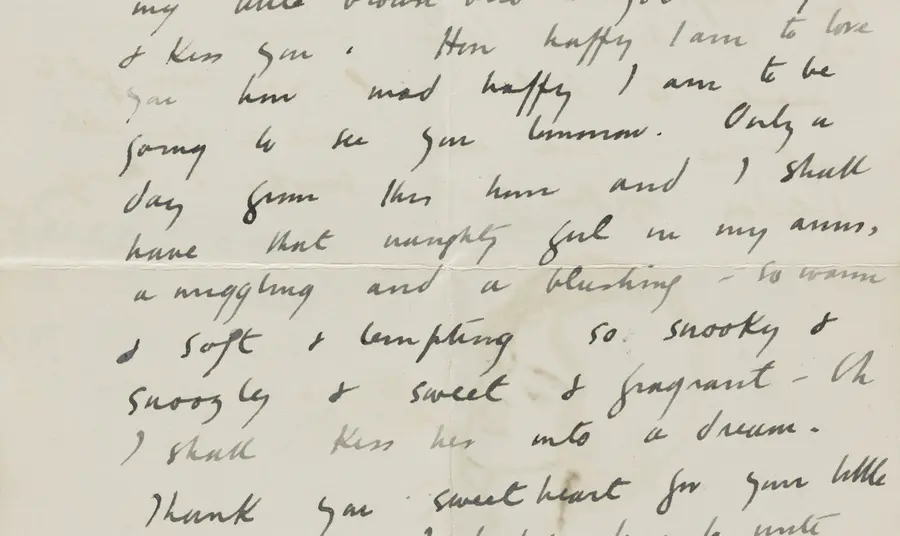 my little
& kiss you. How happy I am to love
you how mad happy I am to be
going to see you tomorrow. Only a
day from this hour and I shall
have that naughty girl in my arms,
a niggling and a blushing – so warm
& soft & tempting so snooky &
snoozley & sweet & fragrant – Oh
I shall kiss her into a dream.
Thank you sweetheart for your little
I to write